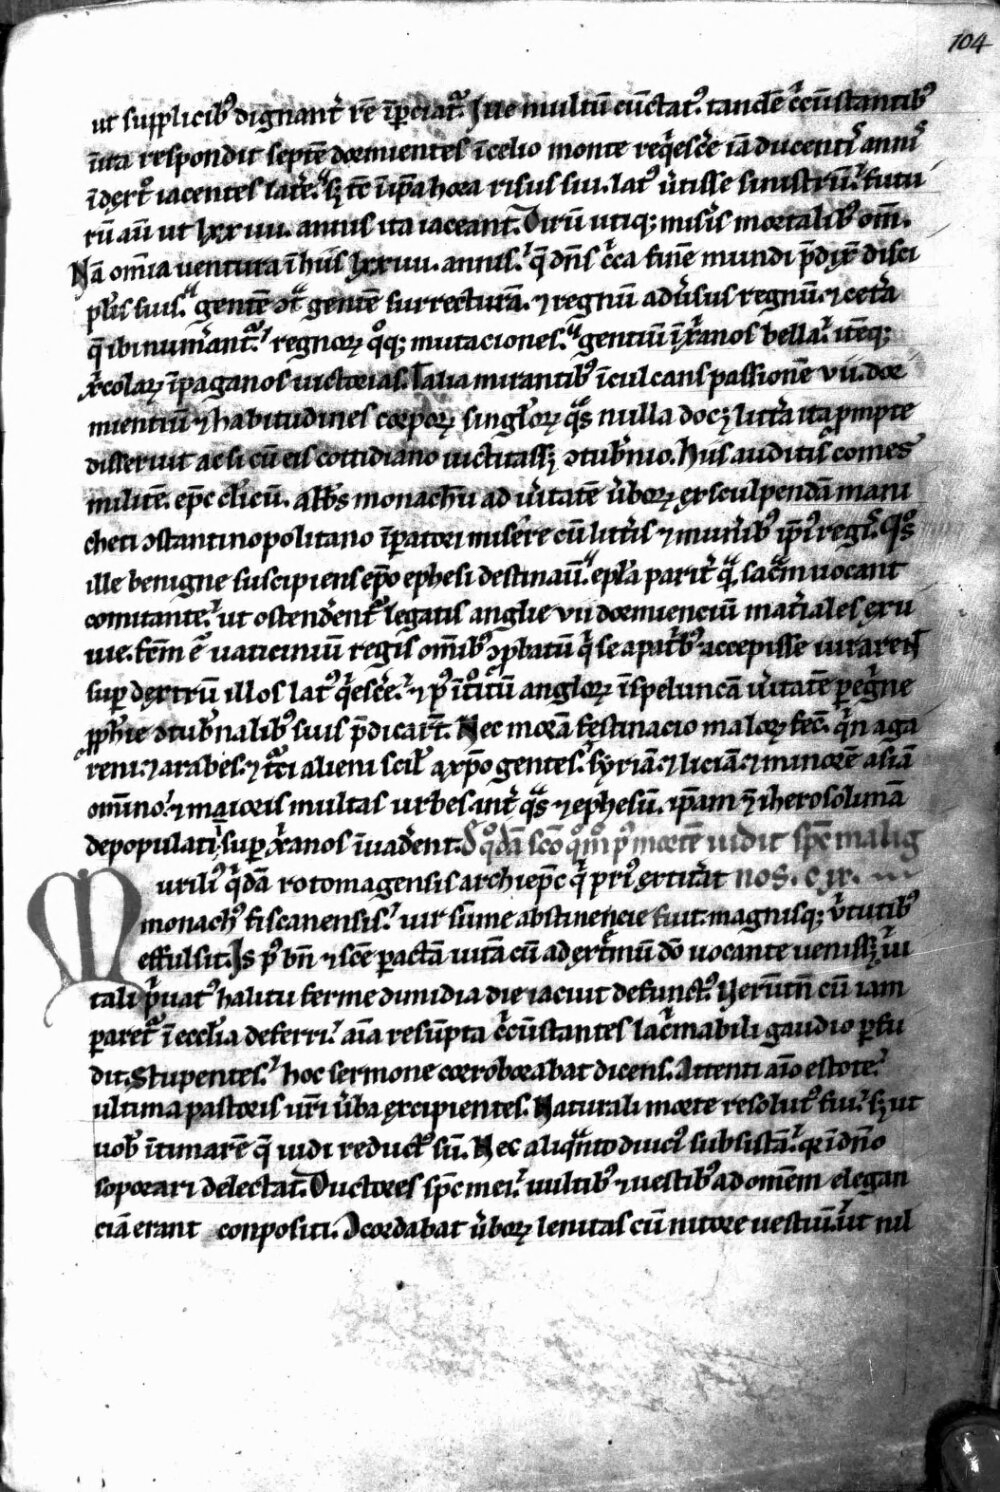 104
ut supplicib⁹ dignant᷑ rē īp̄ciat᷑. Ille multū cūctat⁹. tandē c̾cūstantib⁹
īuta respondit septē dormientes ī celio monte reqͥesc̾e iā ducentis annis
ī dext̾o iacentes lat̾e. sꝫ tc̄ īip̄a hora risus sui. lat⁹ v̾tisse sinistrū. futu
rū aū ut lxx iiii. annis ita iaceant. Dirū utiqꝫ mis̾is mortalib⁹ om̄.
Nā om̄ia uentura ī hiis lxx iiii. annis. q̄ dn̄s c̾ca finē mundi p̄dix̄ disci
pl̄is suis. gentē ɔt̄ gentē surrecturā. ⁊ regnū adu̾sus regnū. ⁊ cet̾a
q̄ ibi num̾ant᷑. regnoꝝ qͦqꝫ mutaciones. gentiū ī xͥanos bella. itēqꝫ
xͥcolaꝝ ī paganos uictorias. Talia mirantib⁹ īculcans passionē vii. dor
mientiū ⁊ habitudines corpoꝝ singl̄oꝝ qͣs nulla docꝫ litt̾a ita ꝓmpte
disseruit ac si cū eis cottidiano uictitassꝫ ɔtub̾nio. Hiis auditis comes
militē. ep̄c cl̄icū. abb̄s monachū ad v̾itatē v̾boꝝ exsculpendā mani
cheti ɔstantinopolitano īp̄atori mis̾e cū litt̾is ⁊ mun̾ib⁹ ip̄i⁹ regis. Qͦs
ille benigne suscipiens ep̄o ephesi destinau̾. epl̄a parit̾ qͣ sac̾m uocant
comitante. ut ostend̾ent᷑ legatis anglie vii dormienciū mat̾iales exu
uie. fc̄m ē uaticiniū regis om̄ib⁹ ꝯꝓbatū qͥ se a pat̾b⁹ accepisse iurarent
sup̄ dextrū illos lat⁹ qͥesc̾e. ⁊ p⁹ ītͦitū angloꝝ ī speluncā v̾itatē ꝑeg̾ne
ꝓph̄ie ɔtub̾nalib⁹ suis p̄dicar̄t. Nec morā festinacio maloꝝ fec̄. qͥn aga
reni. ⁊ arabes. ⁊ tͬci alieni scil̄ a xp̄o gentes. syriā. ⁊ liciā. ⁊ minorē asiā
om̄ino. ⁊ maioris multas urbes. int̾ qͣs ⁊ ephesū. ip̄am ⁊ iherosolimā
depopulati sup̄ xͥanos īuad̾ent. De qͦdā sc̄o qͥ p⁹ mortē uidit sp̄c malig
nos. c. ix.
Mauriliͥ⁹ qͥdā rotomagensis archiep̄c qͥ pri⁹ extit̾at
monach⁹ fiscanensis. uir sūme abstinencie fuit. magnisqꝫ v̾tutib⁹
effulsit. Is p⁹ bn̄ ⁊ sc̄e ꝑactā uitā cū ad ext̾mū dō uocante uenissꝫ ui
tali pͥuat⁹ halitu ferme dimidia die iacuit defunct⁹. Uerūtn̄ cū iam
ꝑaret᷑ ī eccl̄ia deferri. aīa resūpta c̾cūstantes lac̾mabili gaudio ꝑfu
dit. Stupentes. hoc sermone corroborabat dicens. Attenti aīo estote.
ultima pastoris ur̄i v̾ba excipientes. Naturali morte resolut⁹ fui. sꝫ ut
uob̄ ītimarē q̄ uidi reduct⁹ sū. Nec aliqͣnto diuci⁹ subsistā. qꝛ ī dn̄o
soporari delectat. Ductores sp̄c mei. uultib⁹ ⁊ uestib⁹ ad omēm elegan
ciā erant conpositi. ɔcordabat v̾boꝝ lenitas cū nitore uestiū. ut nil